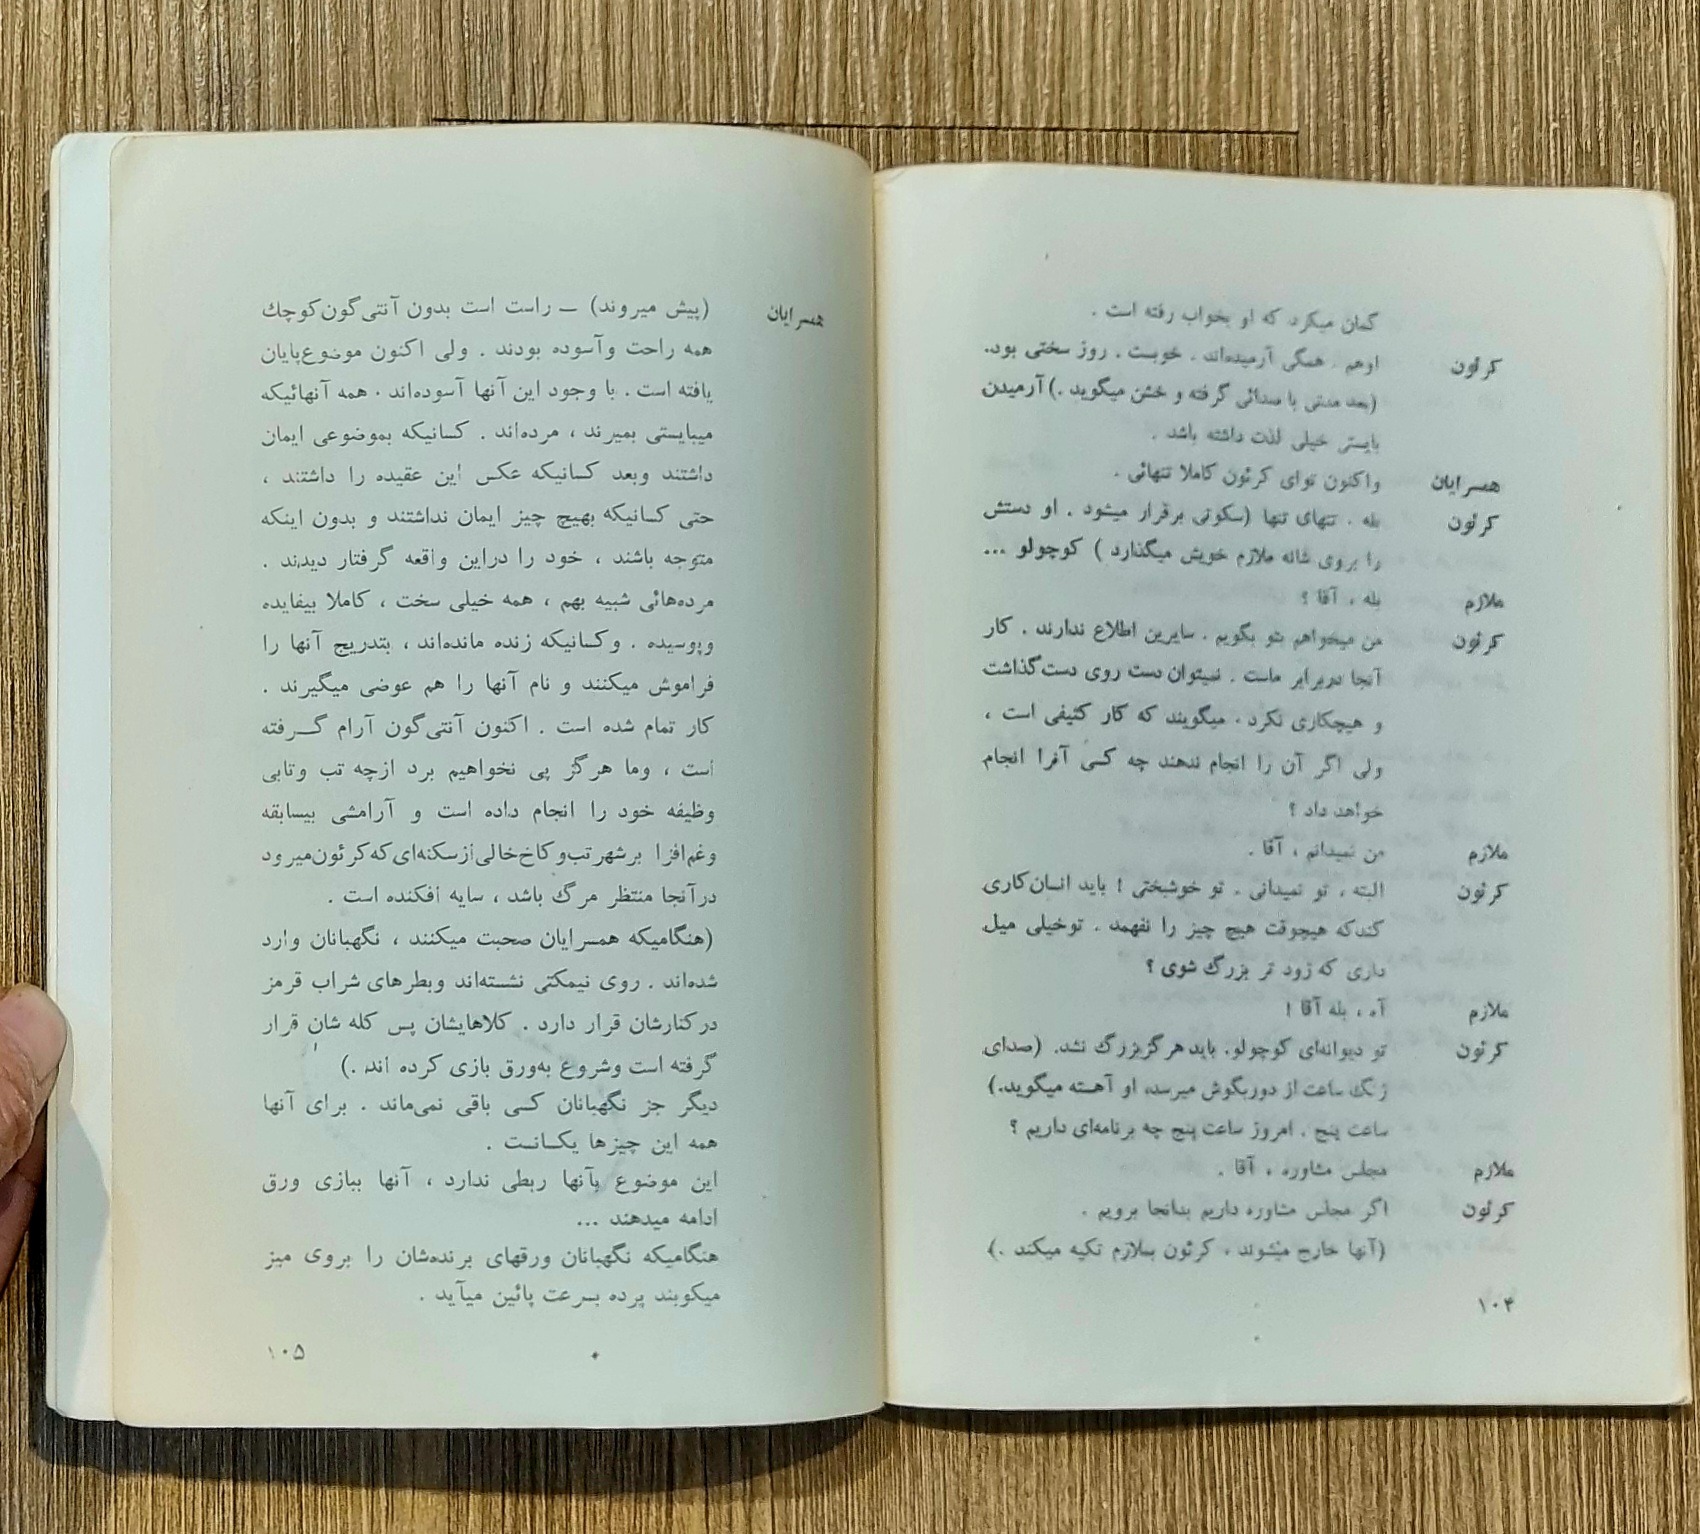 گمان میکرد که او بخواب رفته است .
کرئون اوهم . همگی آرمیده‌اند . خوبست . روز سختی بود.
(بعد مدتی با صدائی گرفته و خشن میگوید .) آرمیدن
بایستی خیلی لذت داشته باشد .
همسرایان واکنون توای کرئون کاملا تنهائی .
کرئون بله . تنهای تنها (سکوتی برقرار میشود . او دستش
را بروی شانه ملازم خویش میگذارد ) کوچولو ...
ملازم بله ، آقا ؟
کرئون من میخواهم بتو بگویم . سایرین اطلاع ندارند . کار
آنجا دربرابر ماست . نمیتوان دست روی دست‌گذاشت
و هیچکاری نکرد . میگویند که کار کثیفی است ،
ولی اگر آن را انجام ندهند چه کسی آنرا انجام
خواهد داد ؟
ملازم من نمیدانم ، آقا .
کرئون البته ، تو نمیدانی . تو خوشبختی ! باید انسان‌کاری
کندکه هیچوقت هیچ چیز را نفهمد . توخیلی میل
داری که زود تر بزرگ شوی ؟
ملازم آه ، بله آقا !
کرئون تو دیوانه‌ای کوچولو. باید هرگزبزرگ نشد. (صدای
زنگ ساعت از دوربگوش میرسد، او آهسته میگوید.)
ساعت پنج . امروز ساعت پنج چه برنامه‌ای داریم ؟
ملازم مجلس مشاوره ، آقا .
کرئون اگر مجلس مشاوره داریم بدانجا برویم .
(آنها خارج میشوند ، کرئون بملازم تکیه میکند .)
۱۰۴
همسرایان (پیش میروند) – راست است بدون آنتی‌گون‌کوچك
همه راحت وآسوده بودند . ولی اکنون موضوع‌پایان
یافته است . با وجود این آنها آسوده‌اند . همه آنهائیکه
میبایستی بمیرند ، مرده‌اند . کسانیکه بموضوعی ایمان
داشتند وبعد کسانیکه عکس این عقیده را داشتند ،
حتی کسانیکه بهیچ چیز ایمان نداشتند و بدون اینکه
متوجه باشند ، خود را دراین واقعه گرفتار دیدند .
مرده‌هائی شبیه بهم ، همه خیلی سخت ، کاملا بیفایده
وپوسیده . وکسانیکه زنده مانده‌اند ، بتدریج آنها را
فراموش میکنند و نام آنها را هم عوضی میگیرند .
کار تمام شده است . اکنون آنتی‌گون آرام گـــرفته
است ، وما هرگز پی نخواهیم برد ازچه تب وتابی
وظیفه خود را انجام داده است و آرامشی بیسابقه
وغم‌افزا برشهرتب‌وکاخ‌خالی‌ازسکنه‌ای‌که‌کرئون‌میرود
درآنجا منتظر مرگ باشد ، سایه افکنده است .
(هنگامیکه همسرایان صحبت میکنند ، نگهبانان وارد
شده‌اند . روی نیمکتی نشسته‌اند وبطرهای شراب قرمز
درکنارشان قرار دارد . کلاهایشان پس کله شان قرار
گرفته است وشروع به‌ورق بازی کرده اند .)
دیگر جز نگهبانان کسی باقی نمی‌ماند . برای آنها
همه این چیزها یکـــانست .
این موضوع بآنها ربطی ندارد ، آنها ببازی ورق
ادامه میدهند ...
هنگامیکه نگهبانان ورقهای برنده‌شان را بروی میز
میکوبند پرده بــرعت پائین میآید .
۱۰۵